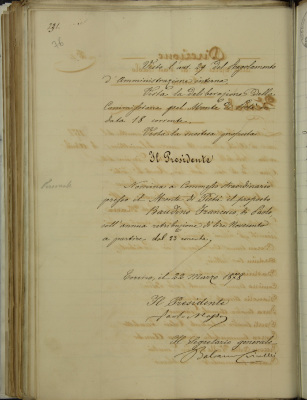 Visto l'art. 29 del Regolamento
d'Amministrazione interna
Vista la deliberazione della
Commissione pel Monte di Pietà
data 18 corrente
Vista la nostra proposta
Il Presidente
Nomina a Consegn straordinario
presso il Monte di Pietà il proposto
Baudino Francesco di Paolo
coll'annua retribuzione di lire Novecento
a partire dal 22 corrente.
Torino, il 22 Marzo 1878
Il Presidente
Il Segretario generale